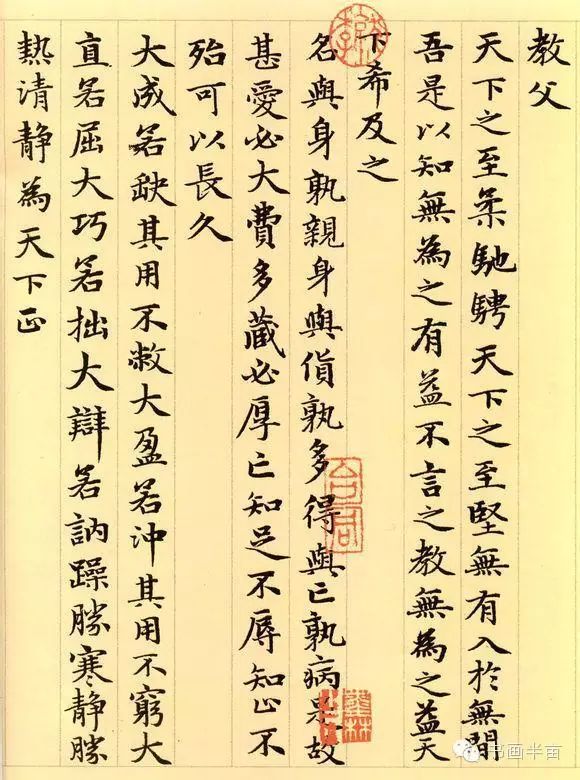 教父
天下之至柔馳騁天下之至堅無有入於無間
吾是以知無為之有益不言之教無為之益天
下希及之
名與身孰親身與貨孰多得與亡孰病是故
甚愛必大費多藏必厚亡知足不辱知止不
殆可以長久
大成若缺其用不敝大盈若沖其用不窮大
直若屈大巧若拙大辯若訥躁勝寒靜勝
熱清靜為天下正
书画半亩